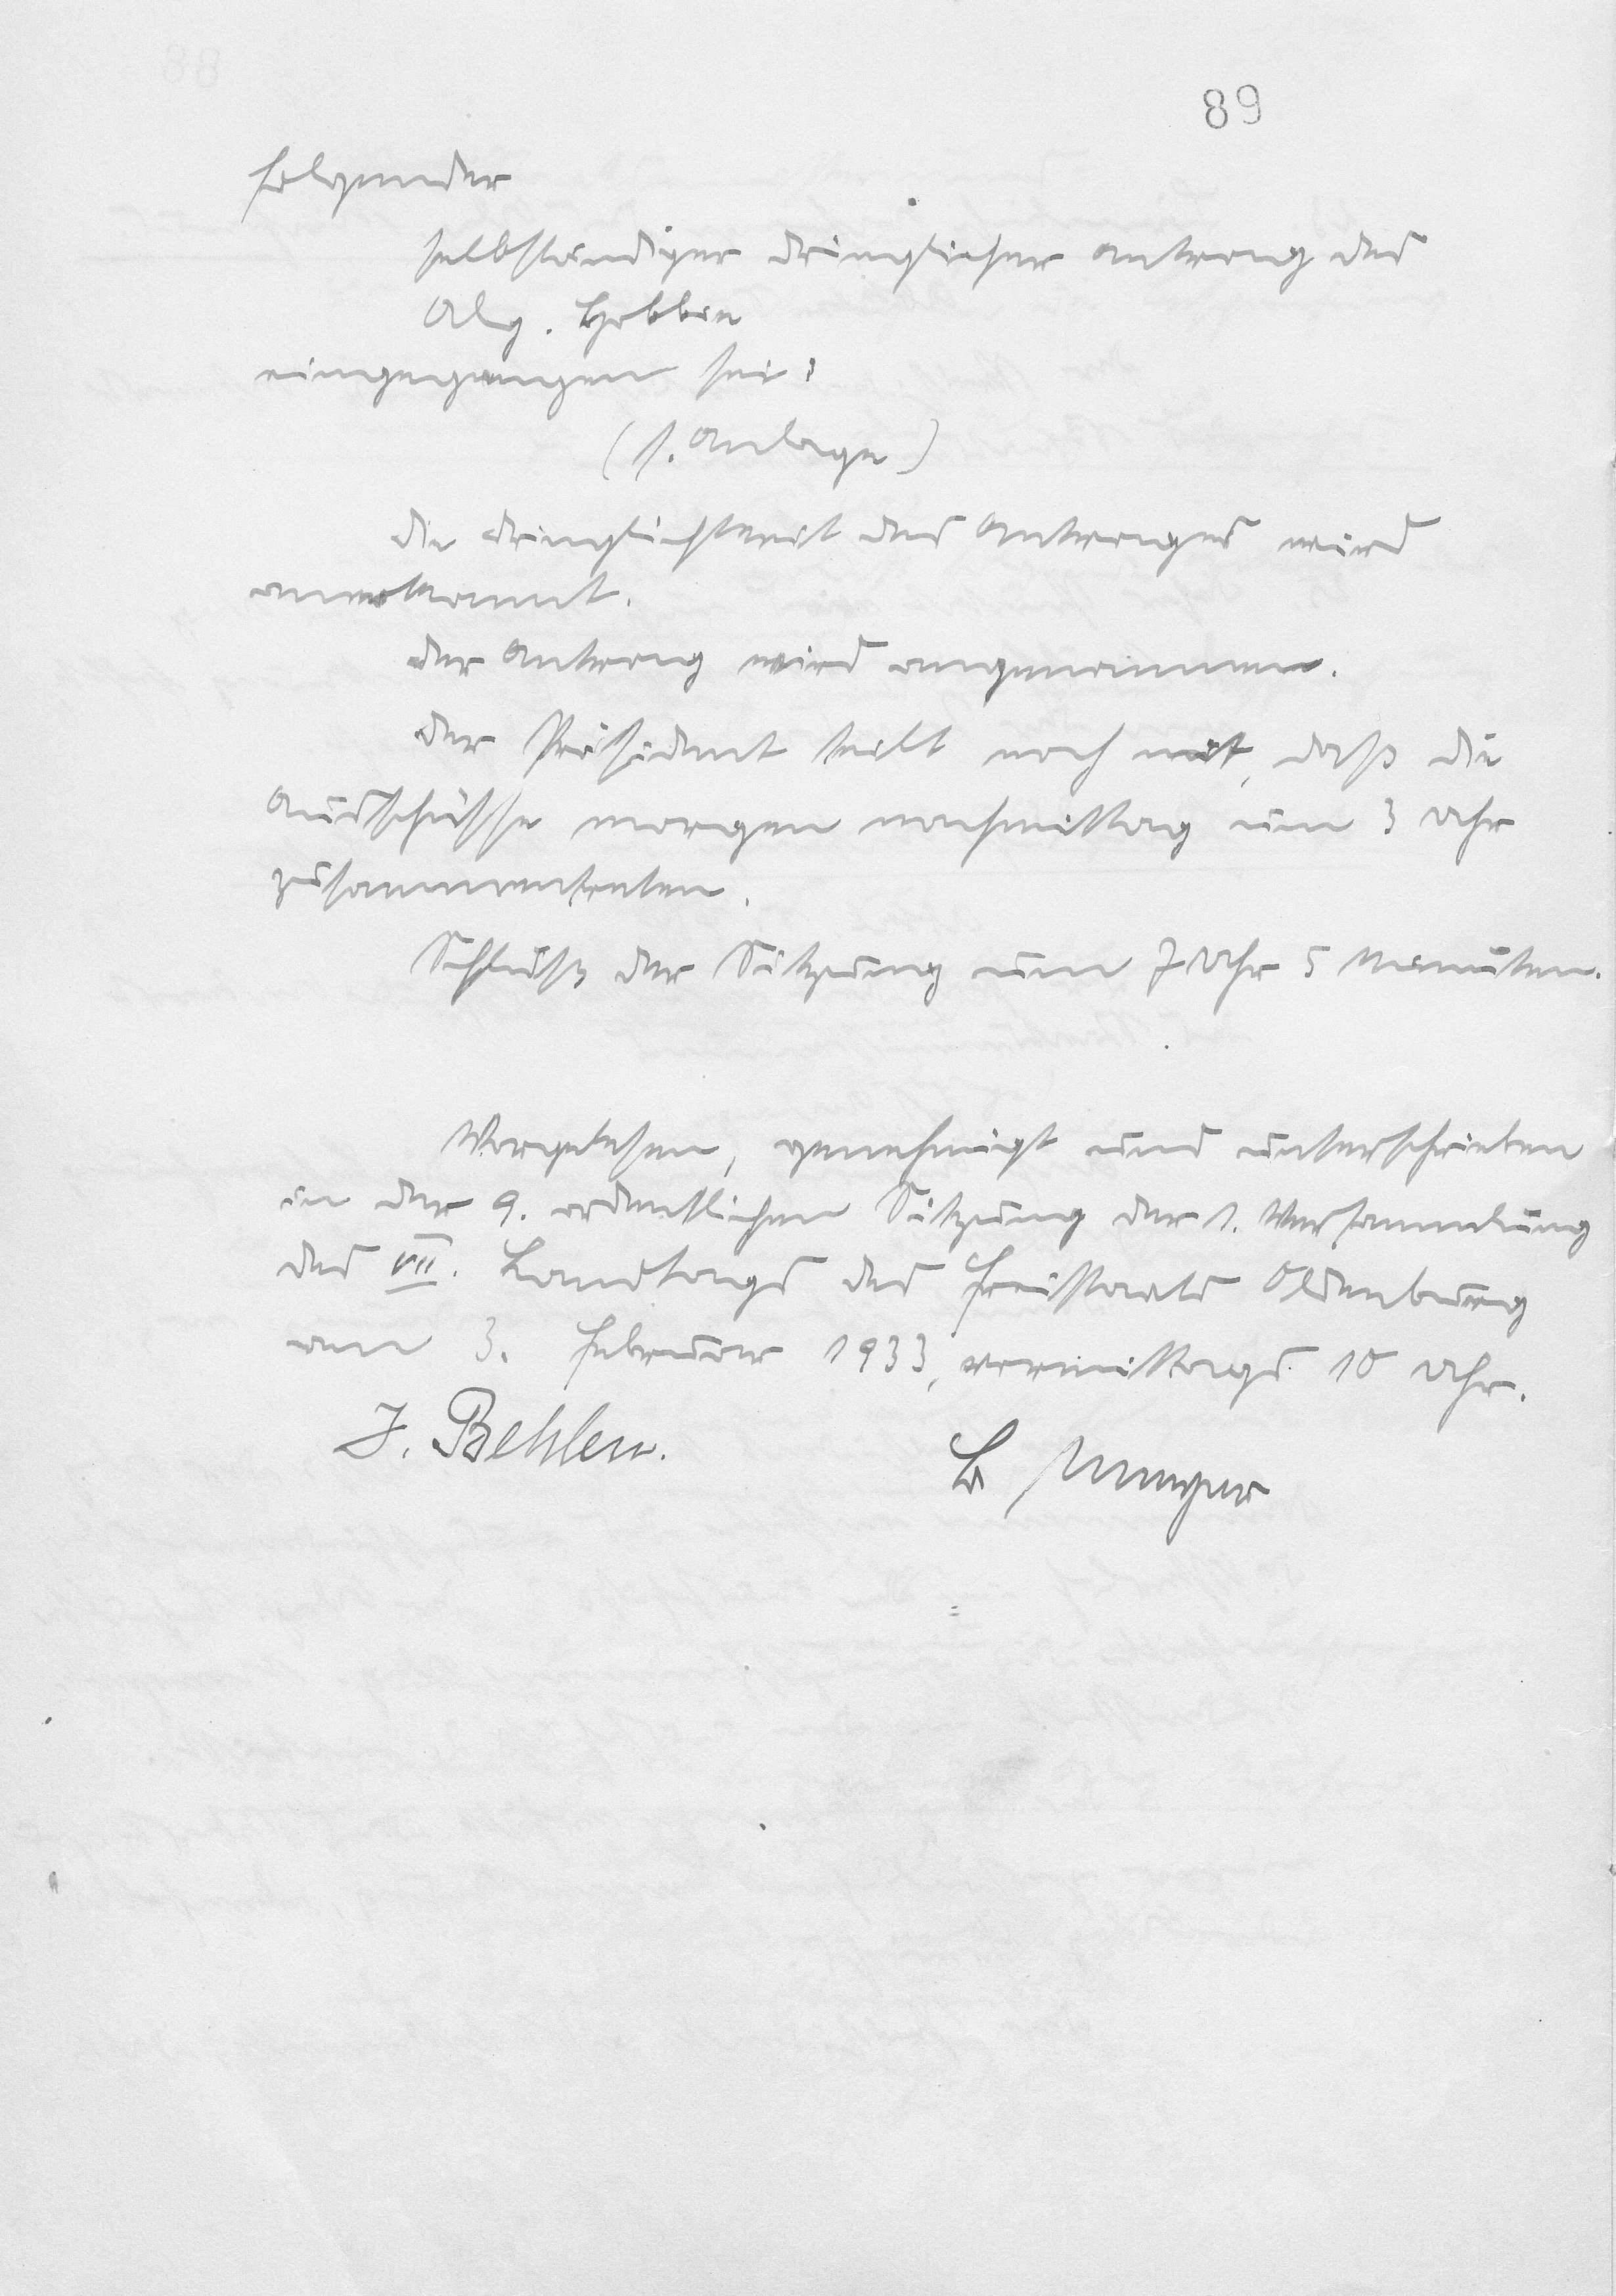 89
folgender
selbständiger dringlicher Antrag des
Abg. Hobbie
eingegangen sei:
(s. Anlage)
Die Dringlichkeit des Antrages wird
anerkannt.
Der Antrag wird angenommen.
Der Präsident teilt noch mit, daß die
Ausschüsse morgen nachmittag um 3 Uhr
zusammentreten.
Schluß der Sitzung um 7 Uhr 5 Minuten.
Vorgelesen, genehmigt und unterschrieben
in der 9. ordentlichen Sitzung der 1. Versammlung
des VII. Landtags des Freistaats Oldenburg
am 3. Februar 1933, vormittags 10 Uhr.
J. Behlen.